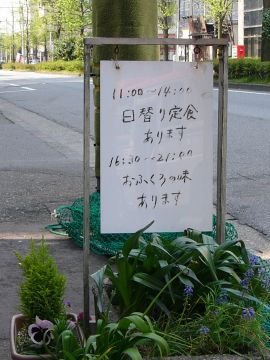 11:00〜14:00
日替り定食
あります
16:30〜21:00
おふくろの味
あります